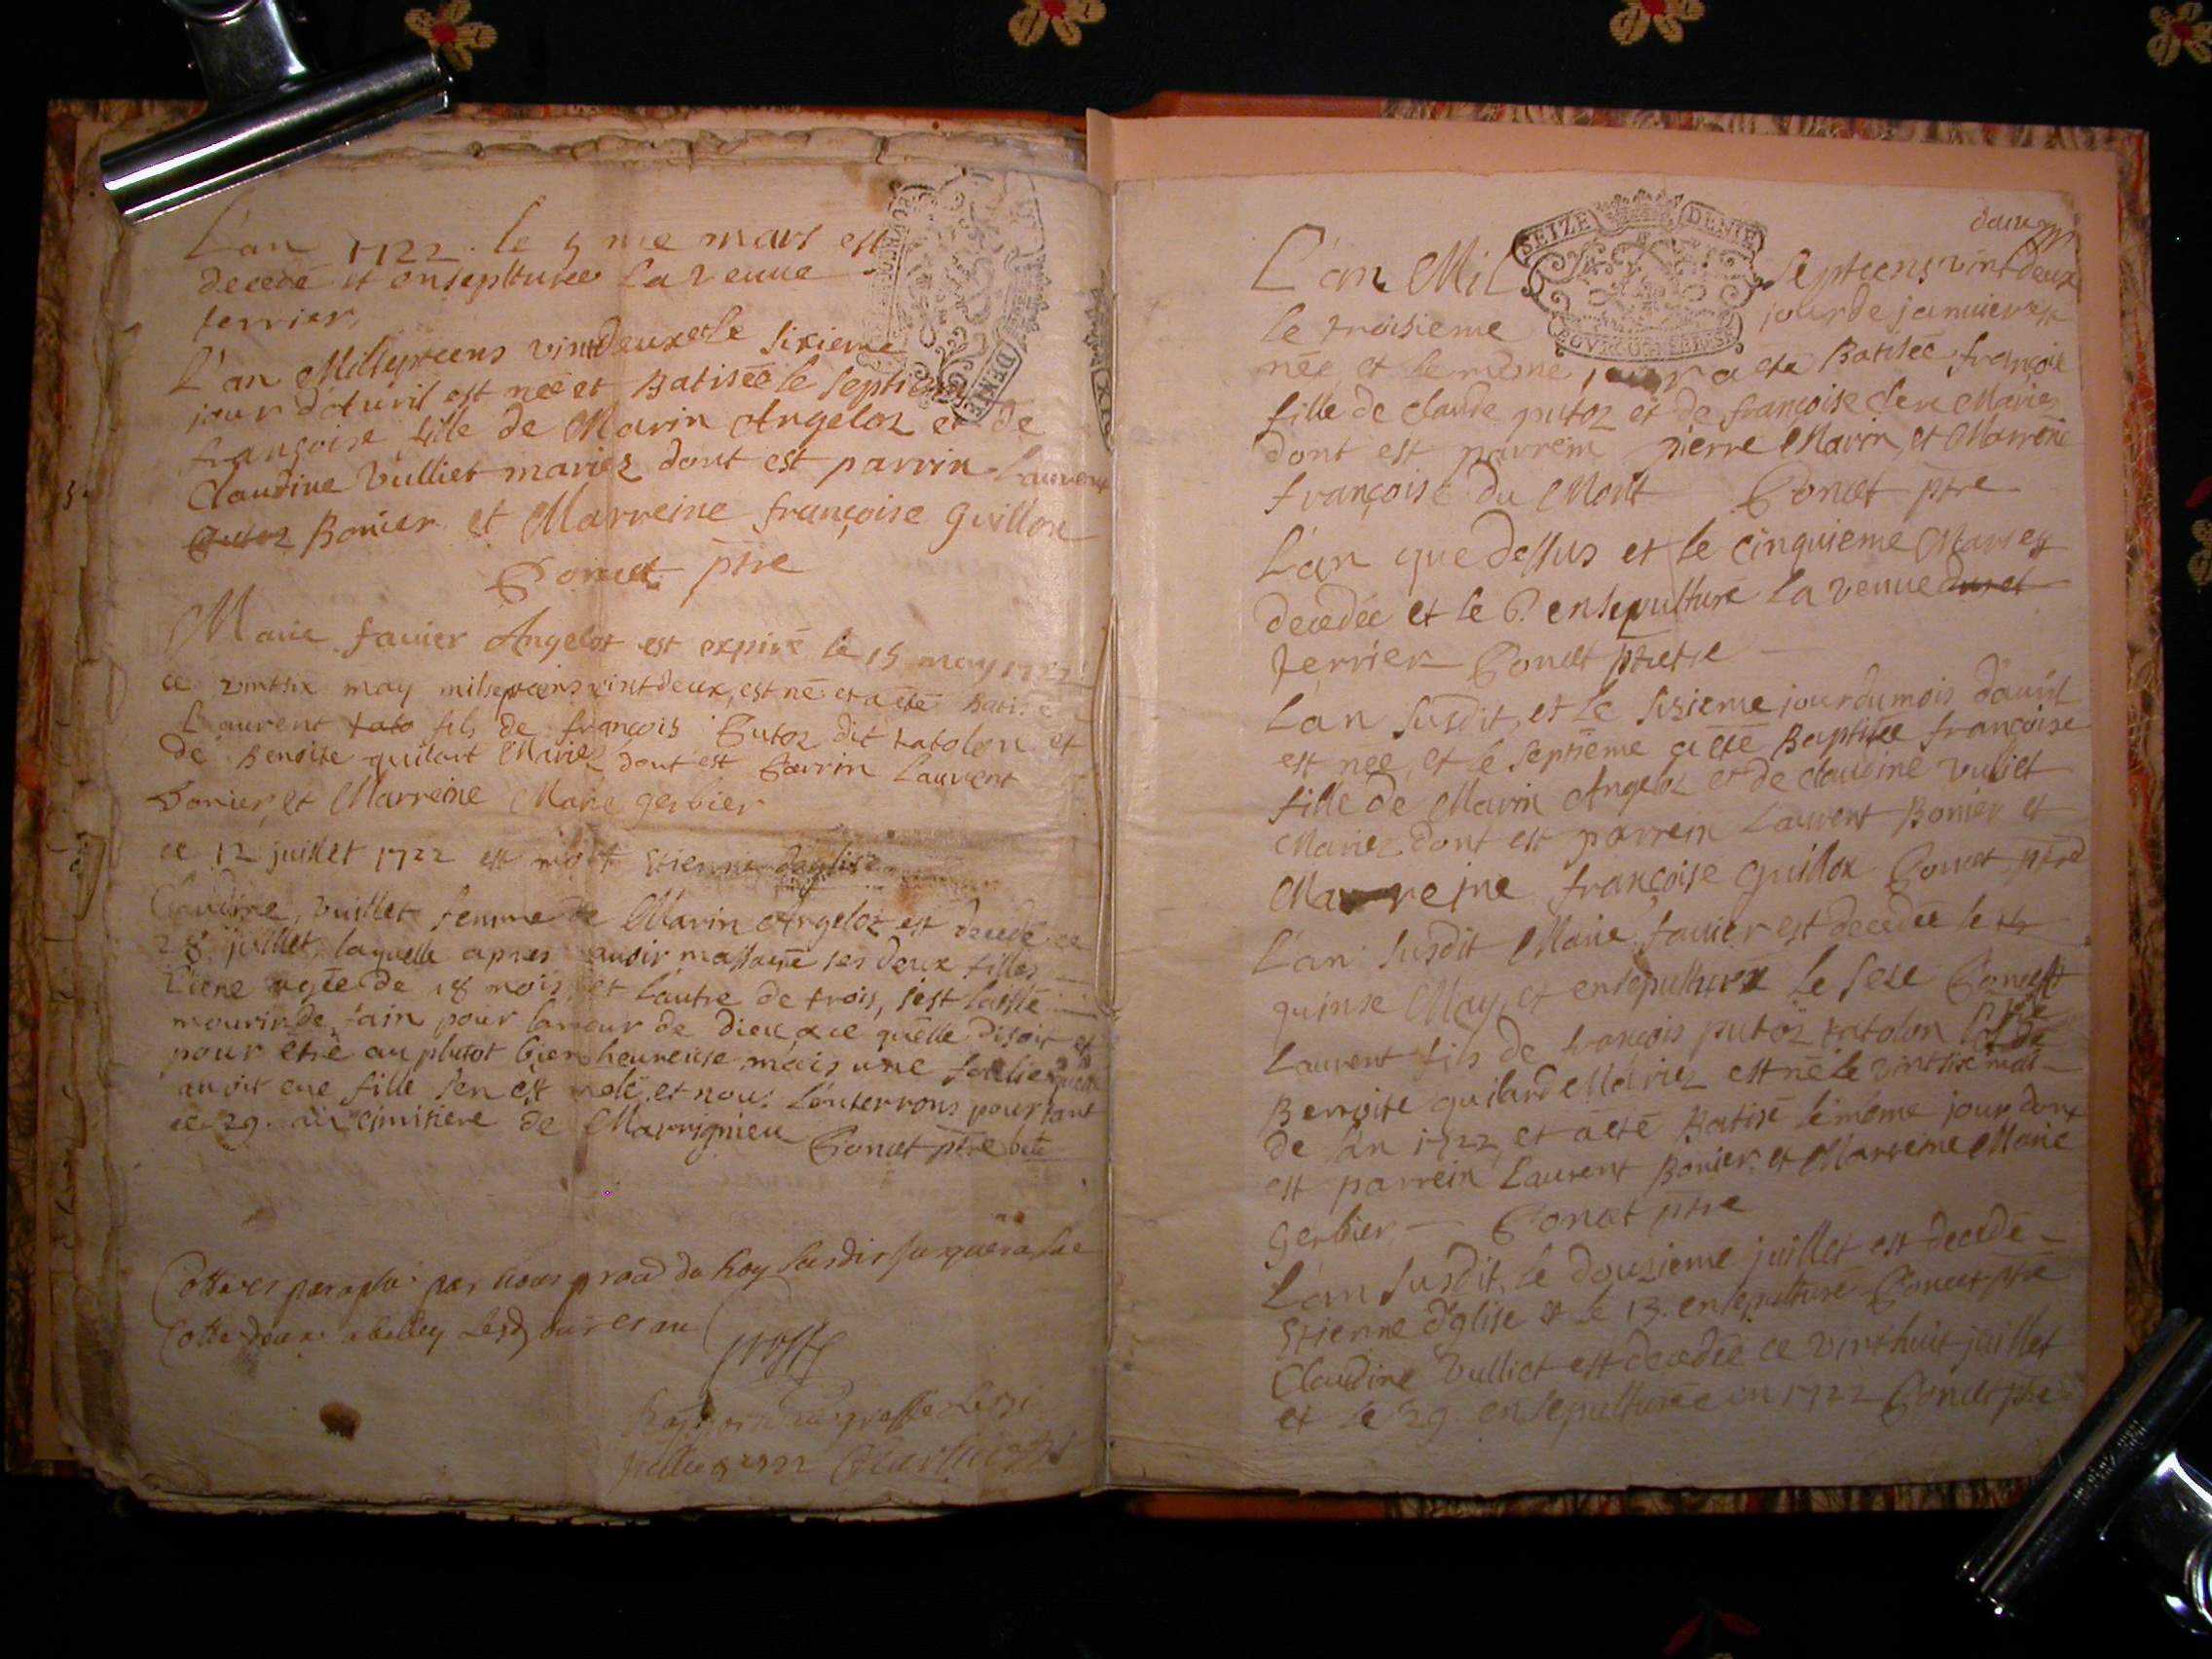 L'an 1722. le 5 me mars est
decedé et ensepulturée La veuve
ferrier.
L'an Millseptcens vintdeux et le Sixieme
jour d'Auril est néé et Batiséé le septieme
françoise fille de Marin Angeloz et de
Claudine Vulliet mariez dont est parrin Laurent
Bonier et Marreine françoise Guillon
Poncet ptre
Marie favier Angelot est expiré le 15 may 1722
ce vintsix may milseptcens vintdeux, est né et a été Batisé
Laurent tato fils de françois Putoz dit tatolon et
de Benoite guilart Mariez dont est Parrin Laurent
Bonier, et Marreine Marie gerbier
ce 12 juillet 1722 est mort Etienne deglise
Claudine, Vulliet femme de Marin Angeloz est decedé ce
28 juillet, laquelle apres auoir massacré ses deux filles
l'une agée de 18 mois et l'autre de trois, s'est laissé
mourir de fain pour lamour de dieu, a ce qu'elle disoit et
pour etre au plutot bien heureuse mais une
auoit eue fille s'en est et nous l'enterrons pourtant
ce 29. au cimitiere de Marrignieu Poncet ptre
Cotté et paraphé par nous du Roy
Cotte deux a belley
SEIZE DENIE
deux
L'an Mil Septcens vintdeux
le troisieme jour de januier est
néé et le même jour a eté Batiséé françoise
fille de Claude putoz et de françoise Mariez
dont est parrein pierre Marin, et Marreine
françoise du Mont Poncet ptre
L'an que dessus et le cinquieme Mars est
decedéé et le 6. ensepulturé La veuve
ferrier Poncet ptre
L'an susdit, et le Sixieme jour du mois d'auril
est néé, et le septiéme a été Baptiséé françoise
fille de Marin Angeloz et de claudine vuliet
Mariez dont est parrein Laurent Bonier et
Marreine françoise Guillon Poncet ptre
L'an susdit Marie favier est decedéé le
quinse May, et ensepulturé le Sese Poncet
ptre
Laurent fils de françois putoz tatolon et de
Benoite guilard Mariez est né le vintsix mai
de l'an 1722, et a été Batisé le même jour dont
est parrein Laurent Bonier et Marreine Marie
Gerbier Poncet ptre
L'an susdit, le douzieme juillet est decedé
Etienne d'Eglise et le 13. ensepulturé Poncet ptre
Claudine Vulliet est decedéé ce vinthuit juillet
et le 29. ensepulturéé en 1722 Poncet ptre